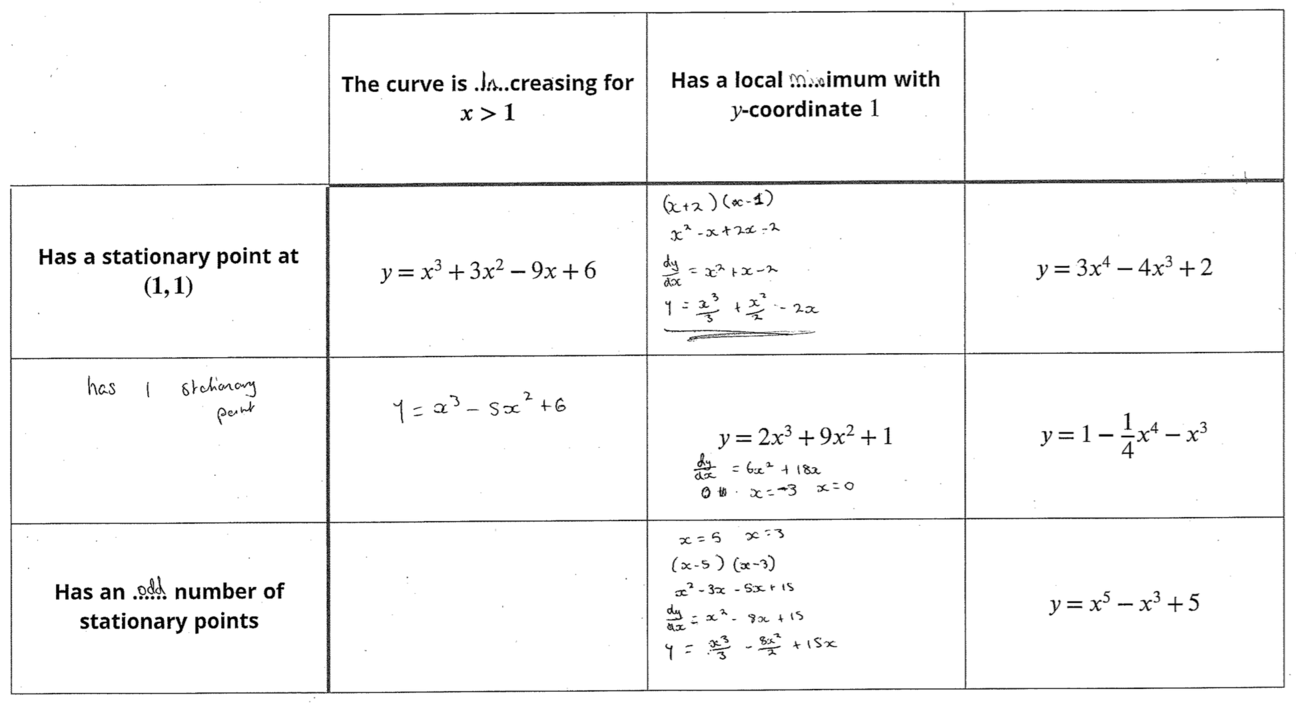 The curve is .In..creasing for
x > 1
Has a local minimum with
y-coordinate 1
Has a stationary point at
(1, 1)
y = x³ + 3x² − 9x + 6
(x+2)(x-1)
x² -x+2x-2
dy/dx = x²+x-2
y = x³/3 + x²/2 - 2x
y = 3x⁴ − 4x³ + 2
has 1 stationary
point
y = x³ - 5x² +6
y = 2x³ + 9x² + 1
dy/dx = 6x² + 18x
x=-3 x=0
y = 1 − 1/4x⁴ − x³
Has an .odd. number of
stationary points
x=5 x=3
(x-5)(x-3)
x²-3x-5x+15
dy/dx = x² - 8x +15
y = x³/3 - 8x²/2 +15x
y = x⁵ − x³ + 5